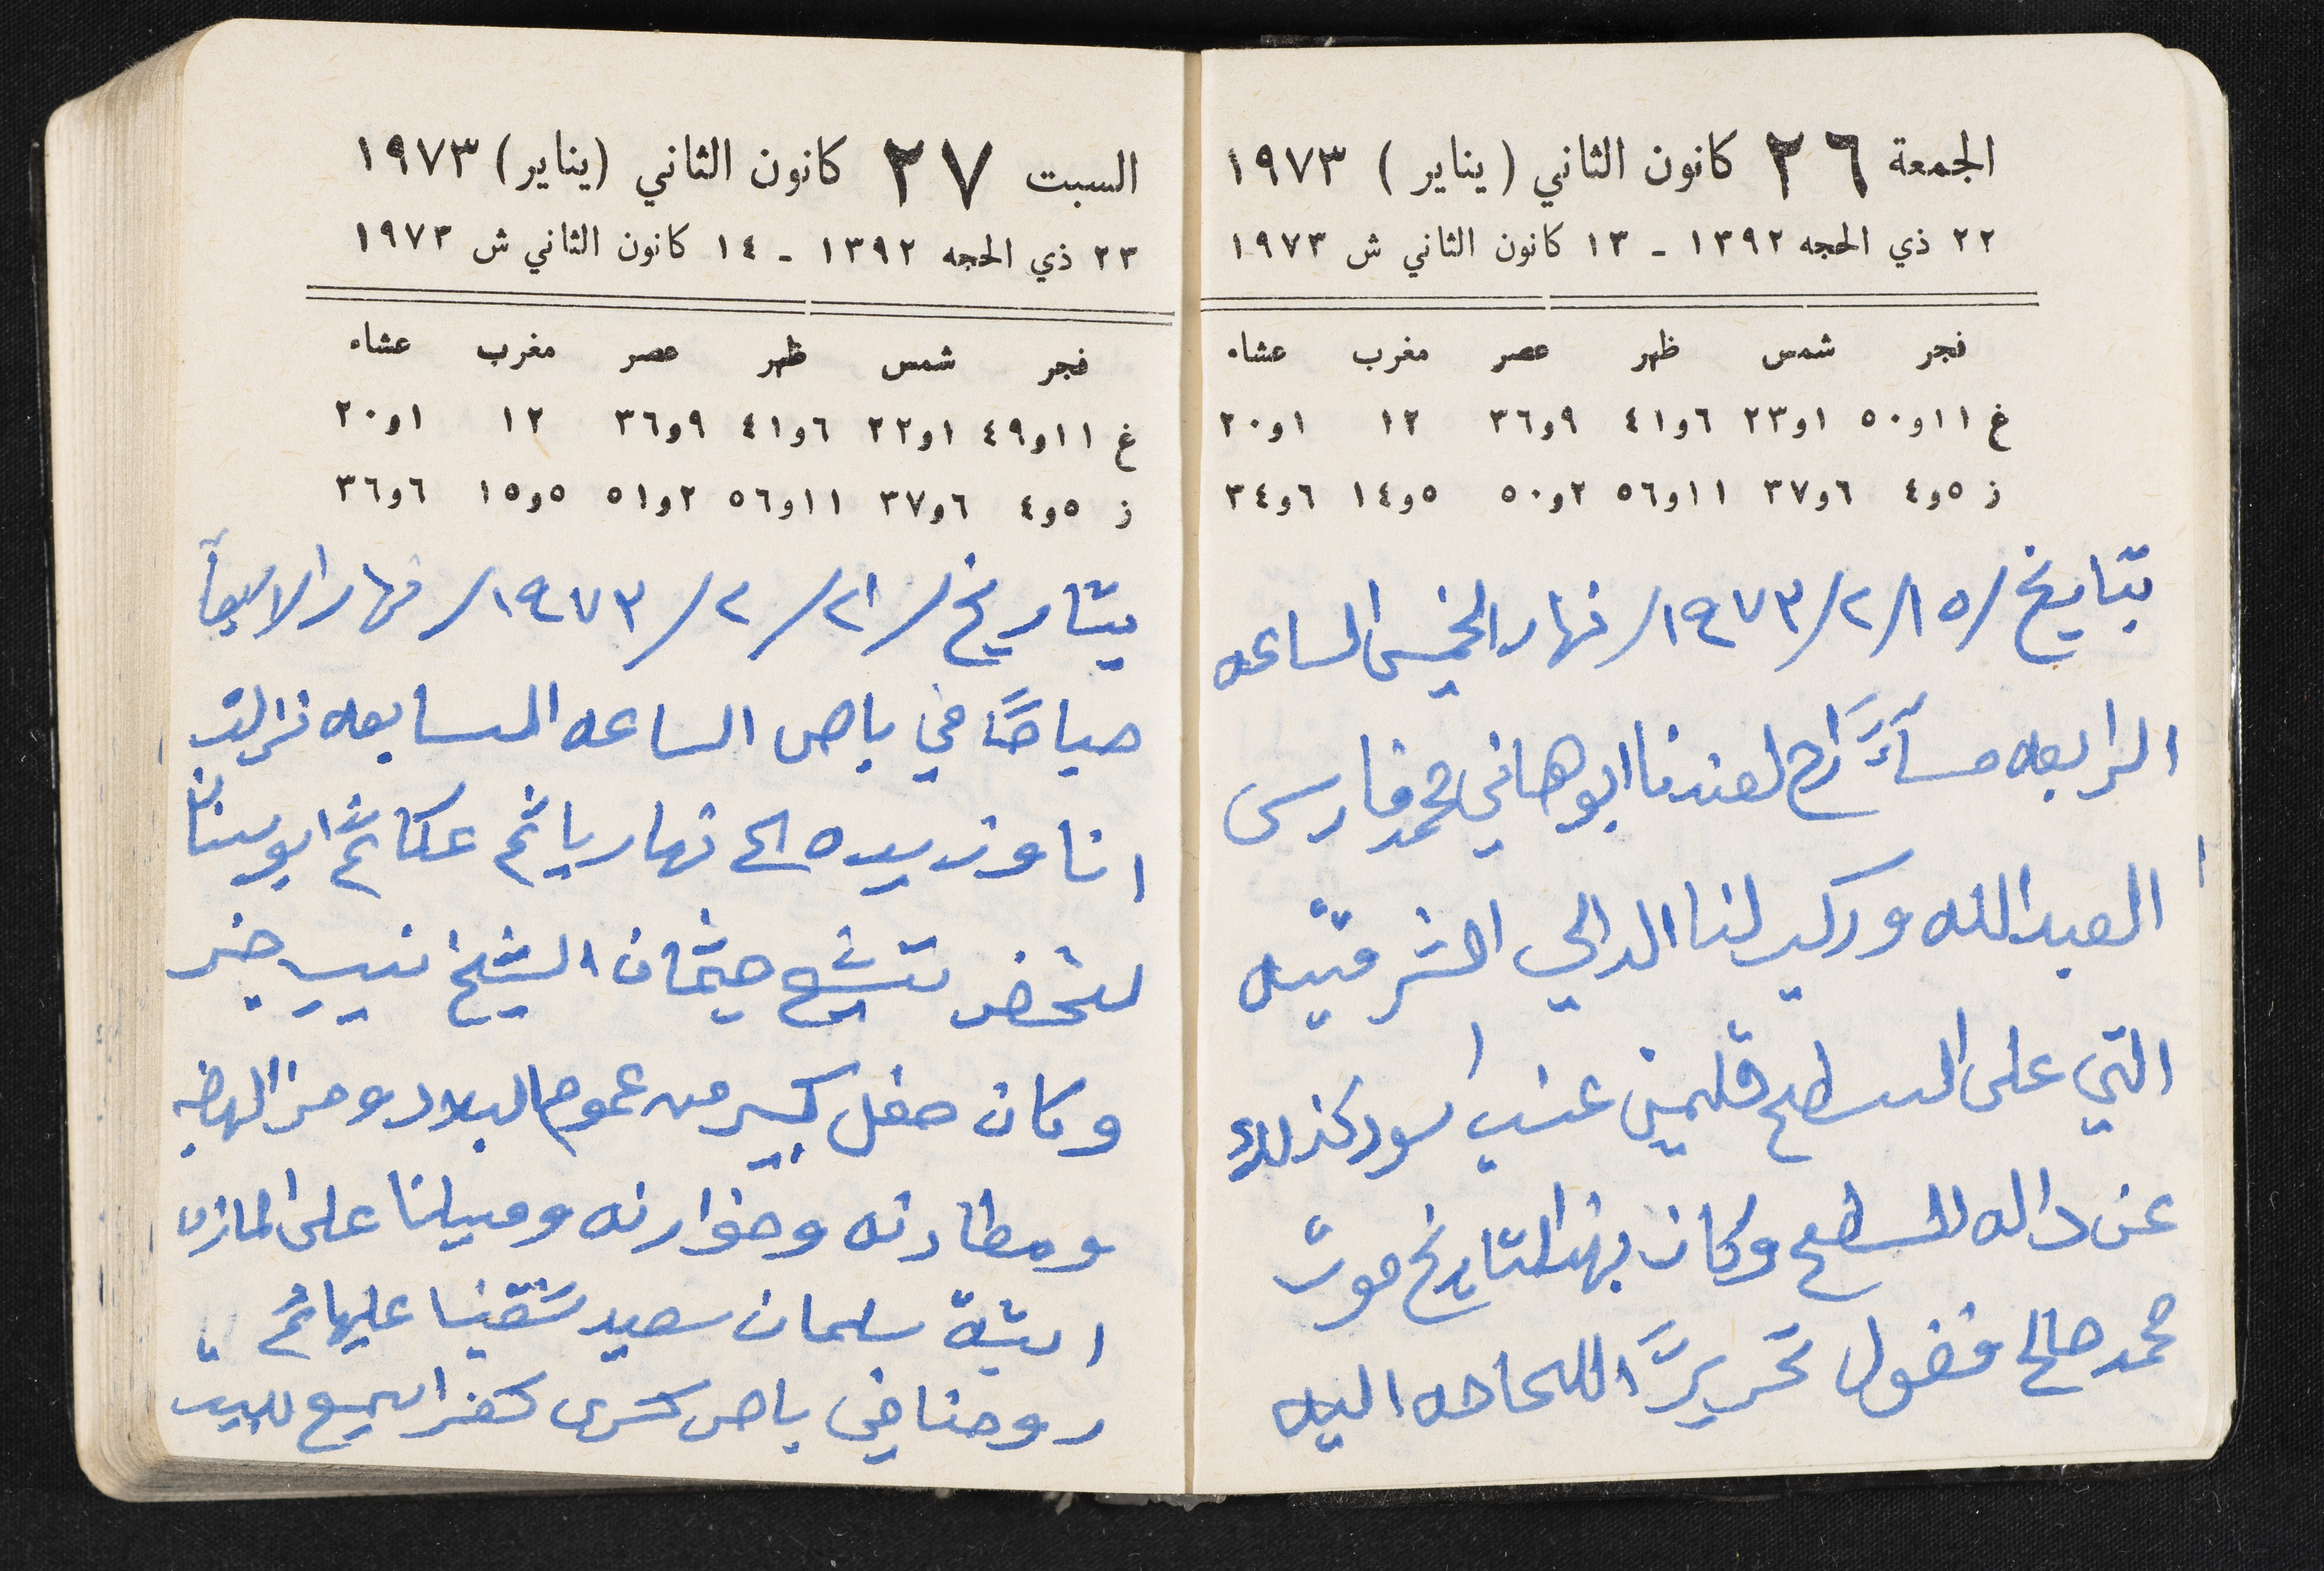 الجمعة ٢٦ كانون الثاني (يناير) ١٩٧٣
٢٢ ذي الحجه ١٣٩٢ - ١٣ كانون الثاني ش ١٩٧٣
فجر شمس ظهر عصر مغرب عشاء
غ ١١و٥٠ ١و٢٣ ٦و٤١ ٩و٣٦ ١٢ ١و٢٠
ز ٥و٤ ٦و٣٧ ١١و٥٦ ٢و٥٠ ٥و١٤ ٦و٣٤
بتايخ /١٥/٢/١٩٧٣/ نهار الخميس الساعه
الرابعه مسآءً لعندنا ابو هاني محمد فارس
العبدالله وركب لنا الدالي الشرقيه
التي على السطح قلمين عنب اسود كذلك
عن داله السطح وكان بهذا التاريخ موت
محمد صالح فضول تحريرًا للحاجه اليه
السبت ٢٧ كانون الثاني (يناير) ١٩٧٣
٢٣ ذي الحجه ١٣٩٢ - ١٤ كانون الثاني ش ١٩٧٣
فجر شمس ظهر عصر مغرب عشاء
غ ١١و٤٩ ١و٢٢ ٦و٤١ ٩و٣٦ ١٢ ١و٢٠
ز ٥و٤ ٦و٣٧ ١١و٥٦ ٢و٥١ ٥و١٥ ٦و٣٦
بتاريخ /٢١/٢/١٩٧٣/ نهار الاربعآ
صباحًا في باص الساعه السابعه نزلت
انا وزبيده الى نهاريا ثم عكا ثم ابو سنان
لنحضر تشيع جثمان الشيخ خير
وكان حفل كبير من عموم البلاد ومن الهضبه
ومطارنه وخوارنه وميلنا على
ابنة سلمان سعيد شقينا عليها ثم
روحنا في باص كسرى كفر اسميع للبيت